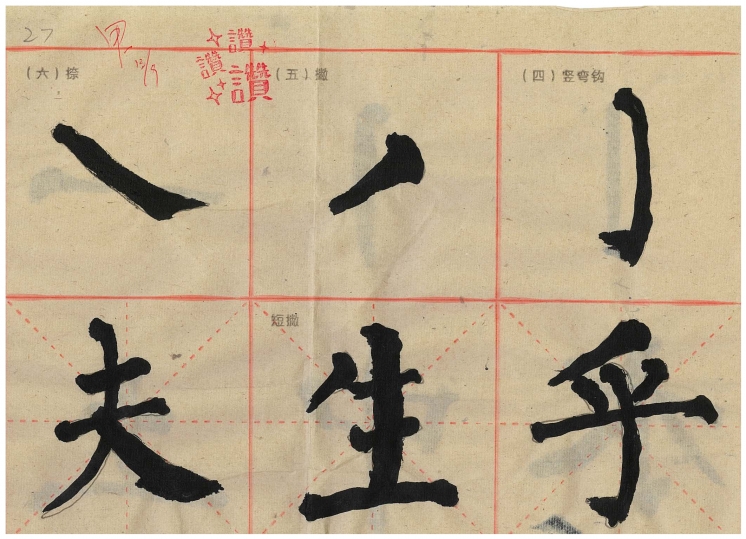 27 甲 13/9
讚 讚 讚
(六)捺 (五)撇 (四)竖弯钩
短撇
夫 生 乎